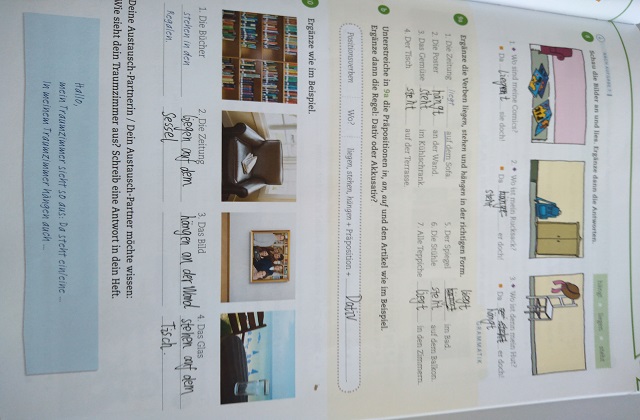 Schau die Bilder an und lies. Ergänze dann die Antworten.
hängt – liegen – steht
1 ● Wo sind meine Comics?
◆ Da liegent sie doch!
2 ● Wo ist mein Rucksack?
◆ Da hängt er doch!
steht
3 ● Wo ist denn mein Hut?
◆ Da er doch!
hängt
GRAMMATIK
Ergänze die Verben liegen, stehen und hängen in der richtigen Form.
1. Die Zeitung liegt auf dem Sofa.
2. Die Poster hängt an der Wand.
3. Das Gemüse steht im Kühlschrank.
4. Der Tisch steht auf der Terrasse.
liegt
5. Der Spiegel im Bad.
6. Die Stühle steht auf dem Balkon.
7. Alle Teppiche liegt in den Zimmern.
Unterstreiche in 9a die Präpositionen in, an, auf und den Artikel wie im Beispiel.
Ergänze dann die Regel: Dativ oder Akkusativ?
Positionsverben Wo? liegen, stehen, hängen + Präposition + Dativ
Ergänze wie im Beispiel.
1. Die Bücher
stehen in den
Regalen.
2. Die Zeitung
liegen auf dem
Sessel
3. Das Bild
hängen an der Wand
4. Das Glas
stehen auf dem
Tisch.
Deine Austausch-Partnerin / Dein Austausch-Partner möchte wissen:
Wie sieht dein Traumzimmer aus? Schreib eine Antwort in dein Heft.
Hallo,
mein Traumzimmer sieht so aus: Da steht ein/eine ...
In meinem Traumzimmer hängen auch ...